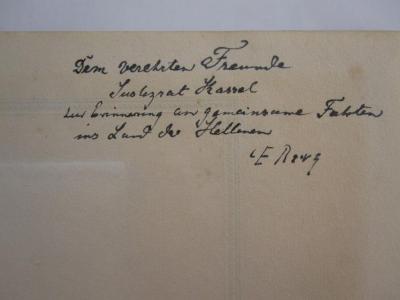 Dem verehrten Freunde
Justizrat Kassel
zur Erinnerung an gemeinsame Fahrten
ins Land der Hellenen
E